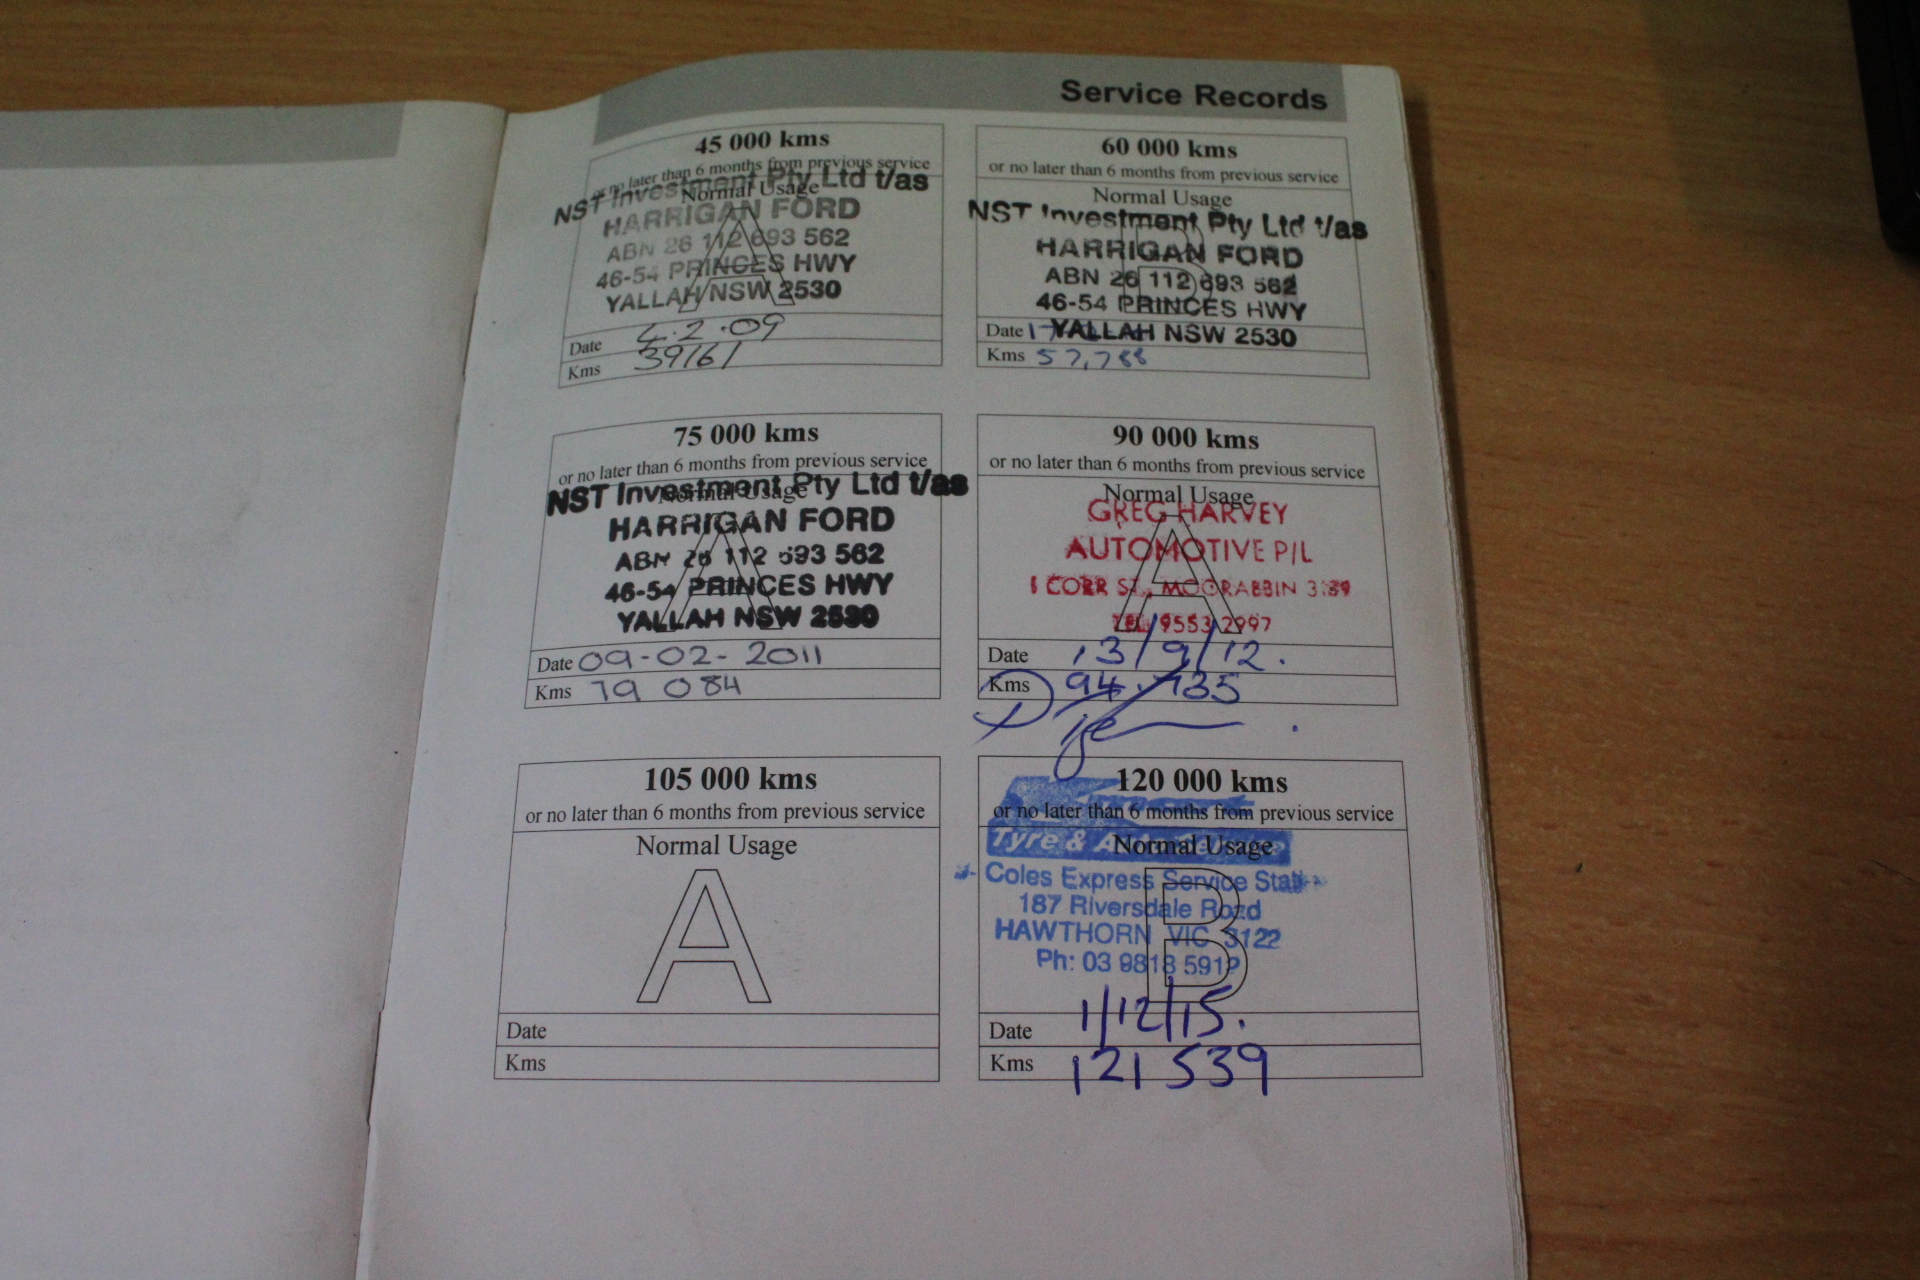 Service Records
45 000 kms
or no later than 6 months from previous service
Normal Usage
A
NST Investment Pty Ltd t/as
HARRIGAN FORD
ABN 26 112 693 562
46-54 PRINCES HWY
YALLAH NSW 2530
Date 4.2.09
Kms 39161
60 000 kms
or no later than 6 months from previous service
Normal Usage
B
NST Investment Pty Ltd t/as
HARRIGAN FORD
ABN 26 112 693 562
46-54 PRINCES HWY
YALLAH NSW 2530
Date
Kms 57,788
75 000 kms
or no later than 6 months from previous service
Normal Usage
A
NST Investment Pty Ltd t/as
HARRIGAN FORD
ABN 26 112 693 562
46-54 PRINCES HWY
YALLAH NSW 2530
Date 09-02-2011
Kms 79 084
90 000 kms
or no later than 6 months from previous service
Normal Usage
A
GREG HARVEY
AUTOMOTIVE P/L
1 CORR ST., MOORABBIN 3189
TEL 9553 2997
Date 13/9/12.
Kms 94,735
105 000 kms
or no later than 6 months from previous service
Normal Usage
A
Date
Kms
120 000 kms
or no later than 6 months from previous service
Normal Usage
B
Tyre & Auto Service
Coles Express Service
187 Riversdale Road
HAWTHORN VIC 3122
Ph: 03 9818 5912
Date 1/12/15.
Kms 121 539